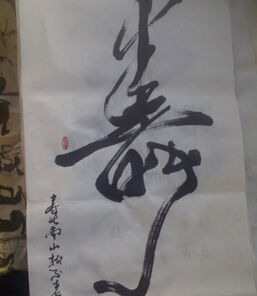 寿
寿比南山松不老